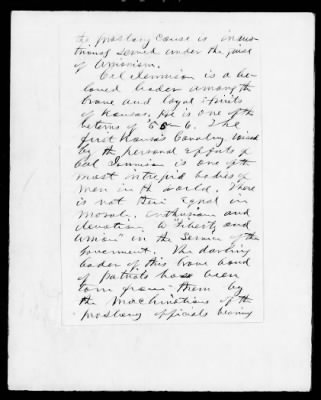 the proslavery cause is indus-
triously served under the guise
of Unionism.
Col Jennison is a be-
loved leader among the
brave and loyal spirits
of Kansas. He is one of the
veterans of '55-6. The
first Kansas Cavalry raised
by the personal efforts of
Col Jennison is one of the
most intrepid bodies of
men in the world. There
is not their equal in
morals, enthusiasm and
devotion to "Liberty and
Union" in the Service of the
Government. The darling
leader of this brave band
of patriots has been
torn from them by
the machinations of the
proslavery officials bearing